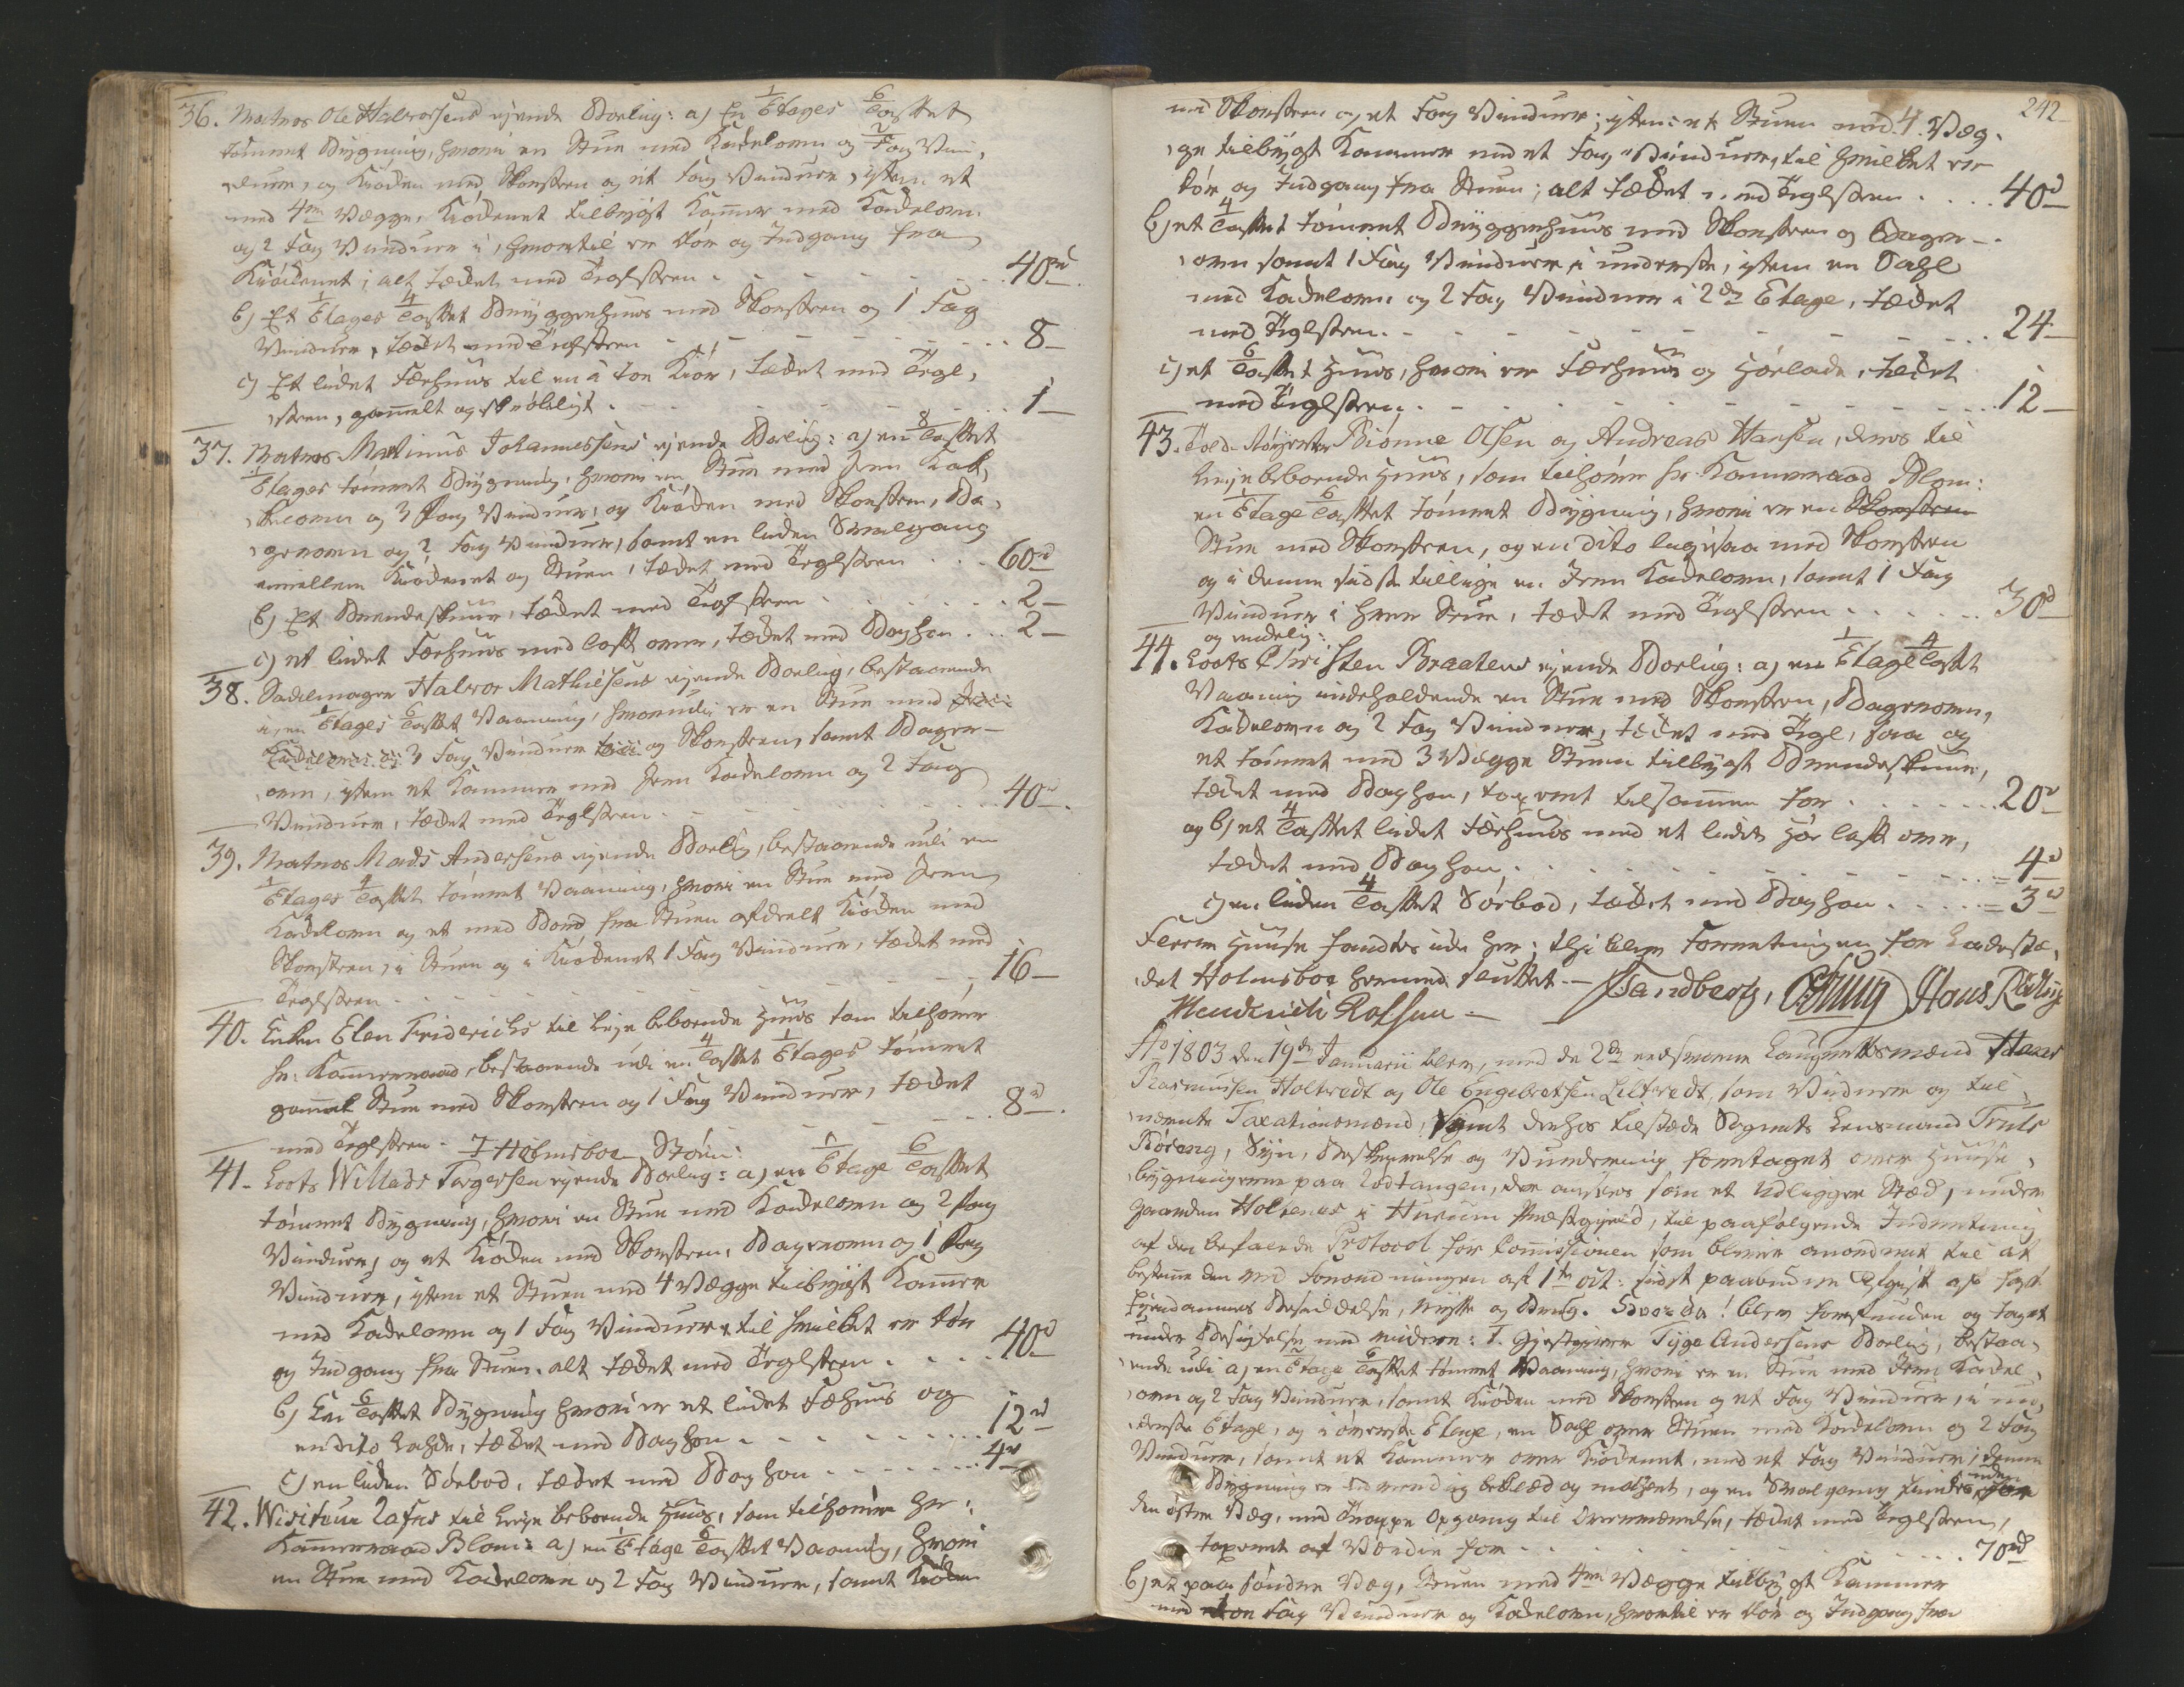 36. Matros Ole Halvorsens ejende Boelig: a) En 1 Etages 6 Castet
tømmret Bygning, hvori en Stue med Kackelovn og 2 Fag Vin-
duer, og Kiøcken med Skorsteen og eet Fag Vinduer, item et
med 4re Vægge, Kiøckenet tilbygt Kammer med Kackelovn
og 2 Fag Vinduer i, hvortil er Dør og Indgang fra
Kiøckenet; alt tæcket med Teglsteen . . . 40rd
b) Et 1 Etages 4 Castet Bryggerhuus med Skorsteen og 1 Fag
Vinduer, tæcket med Teglsteen . . . 8
c) Et lidet Fæehuus til en à toe Kiør, tæcket med Tegl-
steen, gammelt og skrøbeligt . . . 1
37. Matros Martinus Johannessens ejende Boelig: a) en 8 Castet
1 Etages tømmret Bygning, hvori en Stue med Jern Kak-
kelovn og 3 Fag Vinduer, og Kiøcken med Skorsteen, Ba-
gerovn og 2 Fag Vinduer, samt en liden Svalegang
imellem Kiøckenet og Stuen, tæcket med Teglsteen . . . 60rd
b) Et Brendeskuur, tæcket med Teglsteen . . . 2
c) et lidet Fæehuus med Loft over, tæcket med Baghon . . . 2
38. Sadelmager Halvor Mathisens ejende Boelig, bestaaende
i, en 1 Etages 6 Castet Vaaning, hvorudi er en Stue med
Kackelovn og 3 Fag Vinduer og Skorsteen, samt Bager-
ovn, item et Kammer med Jern Kackelovn og 2 Fag
Vinduer, tæcket med Teglsteen . . . 40
39. Matros Mads Andersens ejende Boelig, bestaaende udi en
1 Etages 4 Castet tømmret Vaaning, hvori en Stue med Jern
Kackelovn og et med Bord fra Stuen afdeelt Kiøcken med
Skorsteen, i Stuen og i Kiøckenet 1 Fag Vinduer, tæcket med
Teglsteen . . . 16
40. Enken Elen Friderichs til Leje beboende Huus som tilhører
Hr: Kammerraad, bestaaende udi en 4 Castet 1 Etages tømmret
gammel Stue med Skorsteen og 1 Fag Vinduer, tæcket
med Teglsteen . . . 8rd
I Holmsboe Støen:
41. Loots Willads Torgersen ejende Boelig: a) en 1 Etage 6 Castet
tømmret Bygning, hvori en Stue med Kackelovn og 2 Fag
Vinduer, og et Kiøcken med Skorsteen, Bagerovn og 1 Fag
Vinduer, item et Stuen med 4 Vægge tilbygt Kammer
med Kackelovn og 1 Fag Vinduer til hvilket er Dør
og Indgang fra Stuen. alt tæcket med Teglsteen . . . 40rd
b) En 6 Castet Bygning hvori er et lidet Fæhuus og
en dito Lahde, tæcket med Baghon . . . 12rd
c) en liden Søebod, tæcket med Baghon . . . 4rd
42. Visiteur Lofns til Leje beboende Huus, som tilhører Hr:
Kammerraad Blom: a) en 1 Etage 6 Castet Vaaning, hvori
en Stue med Kackelovn og 2 Fag Vinduer, samt Kiøcken
242
med Skorsteen og et Fag Vinduer; item: et Stuen med 4 Væg-
ge tilbygt Kammer med et Fag Vinduer, til hvilket er
Dør og Indgang fra Stuen; alt tæcket med Teglsteen . . . 40rd
b) et 4 Castet tømmret Bryggerhuus med Skorsteen og Bager-
ovn samt 1 Fag Vinduer i underste, item en Sahl
med Kackelovn og 2 Fag Vinduer i 2den Etage, tæcket
med Teglsteen . . . 24
c) et 6 Castet Huus, hvori er Fæehuus og Høelade, tæcket
med Teglsteen . . . 12
43. Told Rojerter Biønne Olsen og Andreas Hansen, deres til
Leje beboende Huus, som tilhører Hr. Kammerraad Blom:
en 1 Etage 6 Castet tømmret Bygning, hvori er en Skorsteen
Stue med Skorsteen, og en dito ligesaa med Skorsteen
og i denne sidste tillige en Jern Kackelovn, samt 1 Fag
Vinduer i hver Stue, tæcket med Teglsteen . . . 30rd
og endelig:
44. Loots Christen Braatens ejende Boelig: a) en 1 Etage 4 Castet
Vaaning indeholdende en Stue med Skorsteen, Bagerovn,
Kackelovn og 2 Fag Vinduer, tæcket med Tegl, saa og
et tømmret med 3 Vægge Stuen tilbygt Brændeskuur,
tæcket med Baghon, taxeret tilsammen for . . . 20rd
og b) et 4 Castet lidet Fæehuus med et lidet Høe Loft over,
tæcket med Baghon . . . 4rd
c) en liden 4 Castet Søebod, tæcket med Baghon . . . 3rd
Fleere Huuse fandtes icke her; thi blev Forretningen for Ladeste-
det Holmsboe hermed sluttet. — Sandberg, Hans
Ao 1803 den 19de Januarii blev, med de 2de eedsvorne Laugrettesmænd Hans
Rasmussen Holtvedt og Ole Engebretsen Liltvedt, som Vurderer og til-
nævnte Taxationsmænd, samt derhos tilstæde Sognets Lensmand Truls
Børeng, Syn, Beskrivelse og Vurdering foretaget over Huuse-
bygningerne paa Rødtangen, der ansees som et Udligger Stæd, under
Gaarden Holtenes i Hurum Præstegjeld, til paafølgende Indretning
af den befalede Protocol for Commissionen som bliver anordnet til at
bestemme den ved Forordningen af 1te Oct: sidst paabudne Afgift af fast
Ejendommes Besiddelse, Nytte og Brug. Hvor da! blev forefunden og taget
under Besigtelse med videre: 1. Gjestgiver Tyge Andersens Boelig, bestaa-
ende udi a) en 2 Etage 6 Castet tømmret Vaaning, hvori er en Stue med Jern Kackel-
ovn og 2 Fag Vinduer, samt Kiøcken med Skorsteen og et Fag Vinduer, i un-
derste Etage, og i øverste Etage, en Sahl over Stuen med Kackelovn og 2 Fag
Vinduer, samt et Kammer over Kiøckenet, med et Fag Vinduer; denne
Bygning er udvendig beklæd og mahlet, og en Svalgang findes uden for
den østre Væg, med Trappe Opgang til Overværelse, tæcket med Teglsteen,
taxeret af Værdie for . . . 70rd
b) et paa søndre Væg, Stuen med 4re Vægge tilbygt Kammer
med toe Fag Vinduer og Kackelovn, hvortil er Dør og Indgang fra